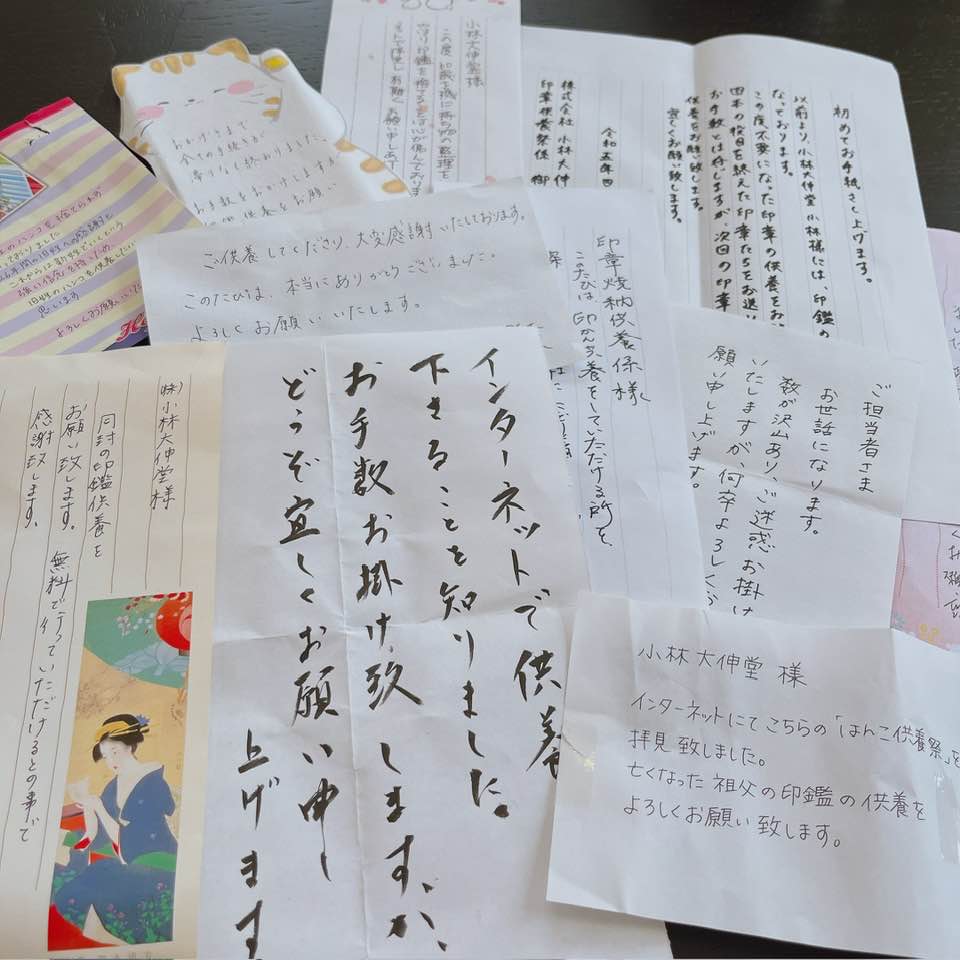 小林大伸堂様
この度
初めてお手紙さし上げます。
以前より、小林大伸堂 小林様には、印鑑の
なっております。
この度不要になった印章の供養をお
日本の役目を終えた印章たちをお送り
お手数とは存じますが、次回の印章
供養をお願い致します。
宜しくお願い致します。
令和五年
株式会社 小林大伸
印章供養祭係 御
おかげさまで
全ての手続きが
滞りなく終わりました。
お手数をおかけしますが
供養をお願い
のハンコを捨てられず
よろしくお願いいたし
ご供養してくださり、大変感謝いたしております。
このたびは、本当にありがとうございました。
よろしくお願いいたします。
印章焼納供養係様
このたびは印かん供養をしていただける所を、
ご担当者さま
お世話になります。
数が沢山あり、ご迷惑お掛け
いたしますが、何卒よろしくお
願い申し上げます。
㈱小林大伸堂様
同封の印鑑供養を
お願い致します。
無料で行っていただけるとの事で
感謝致します。
インターネットで供養
下さることを知りました。
お手数お掛け致しますが、
どうぞ宜しくお願い申し
上げます
小林大伸堂 様
インターネットにてこちらの「はんこ供養祭」を
拝見致しました。
亡くなった祖父の印鑑の供養を
よろしくお願い致します。